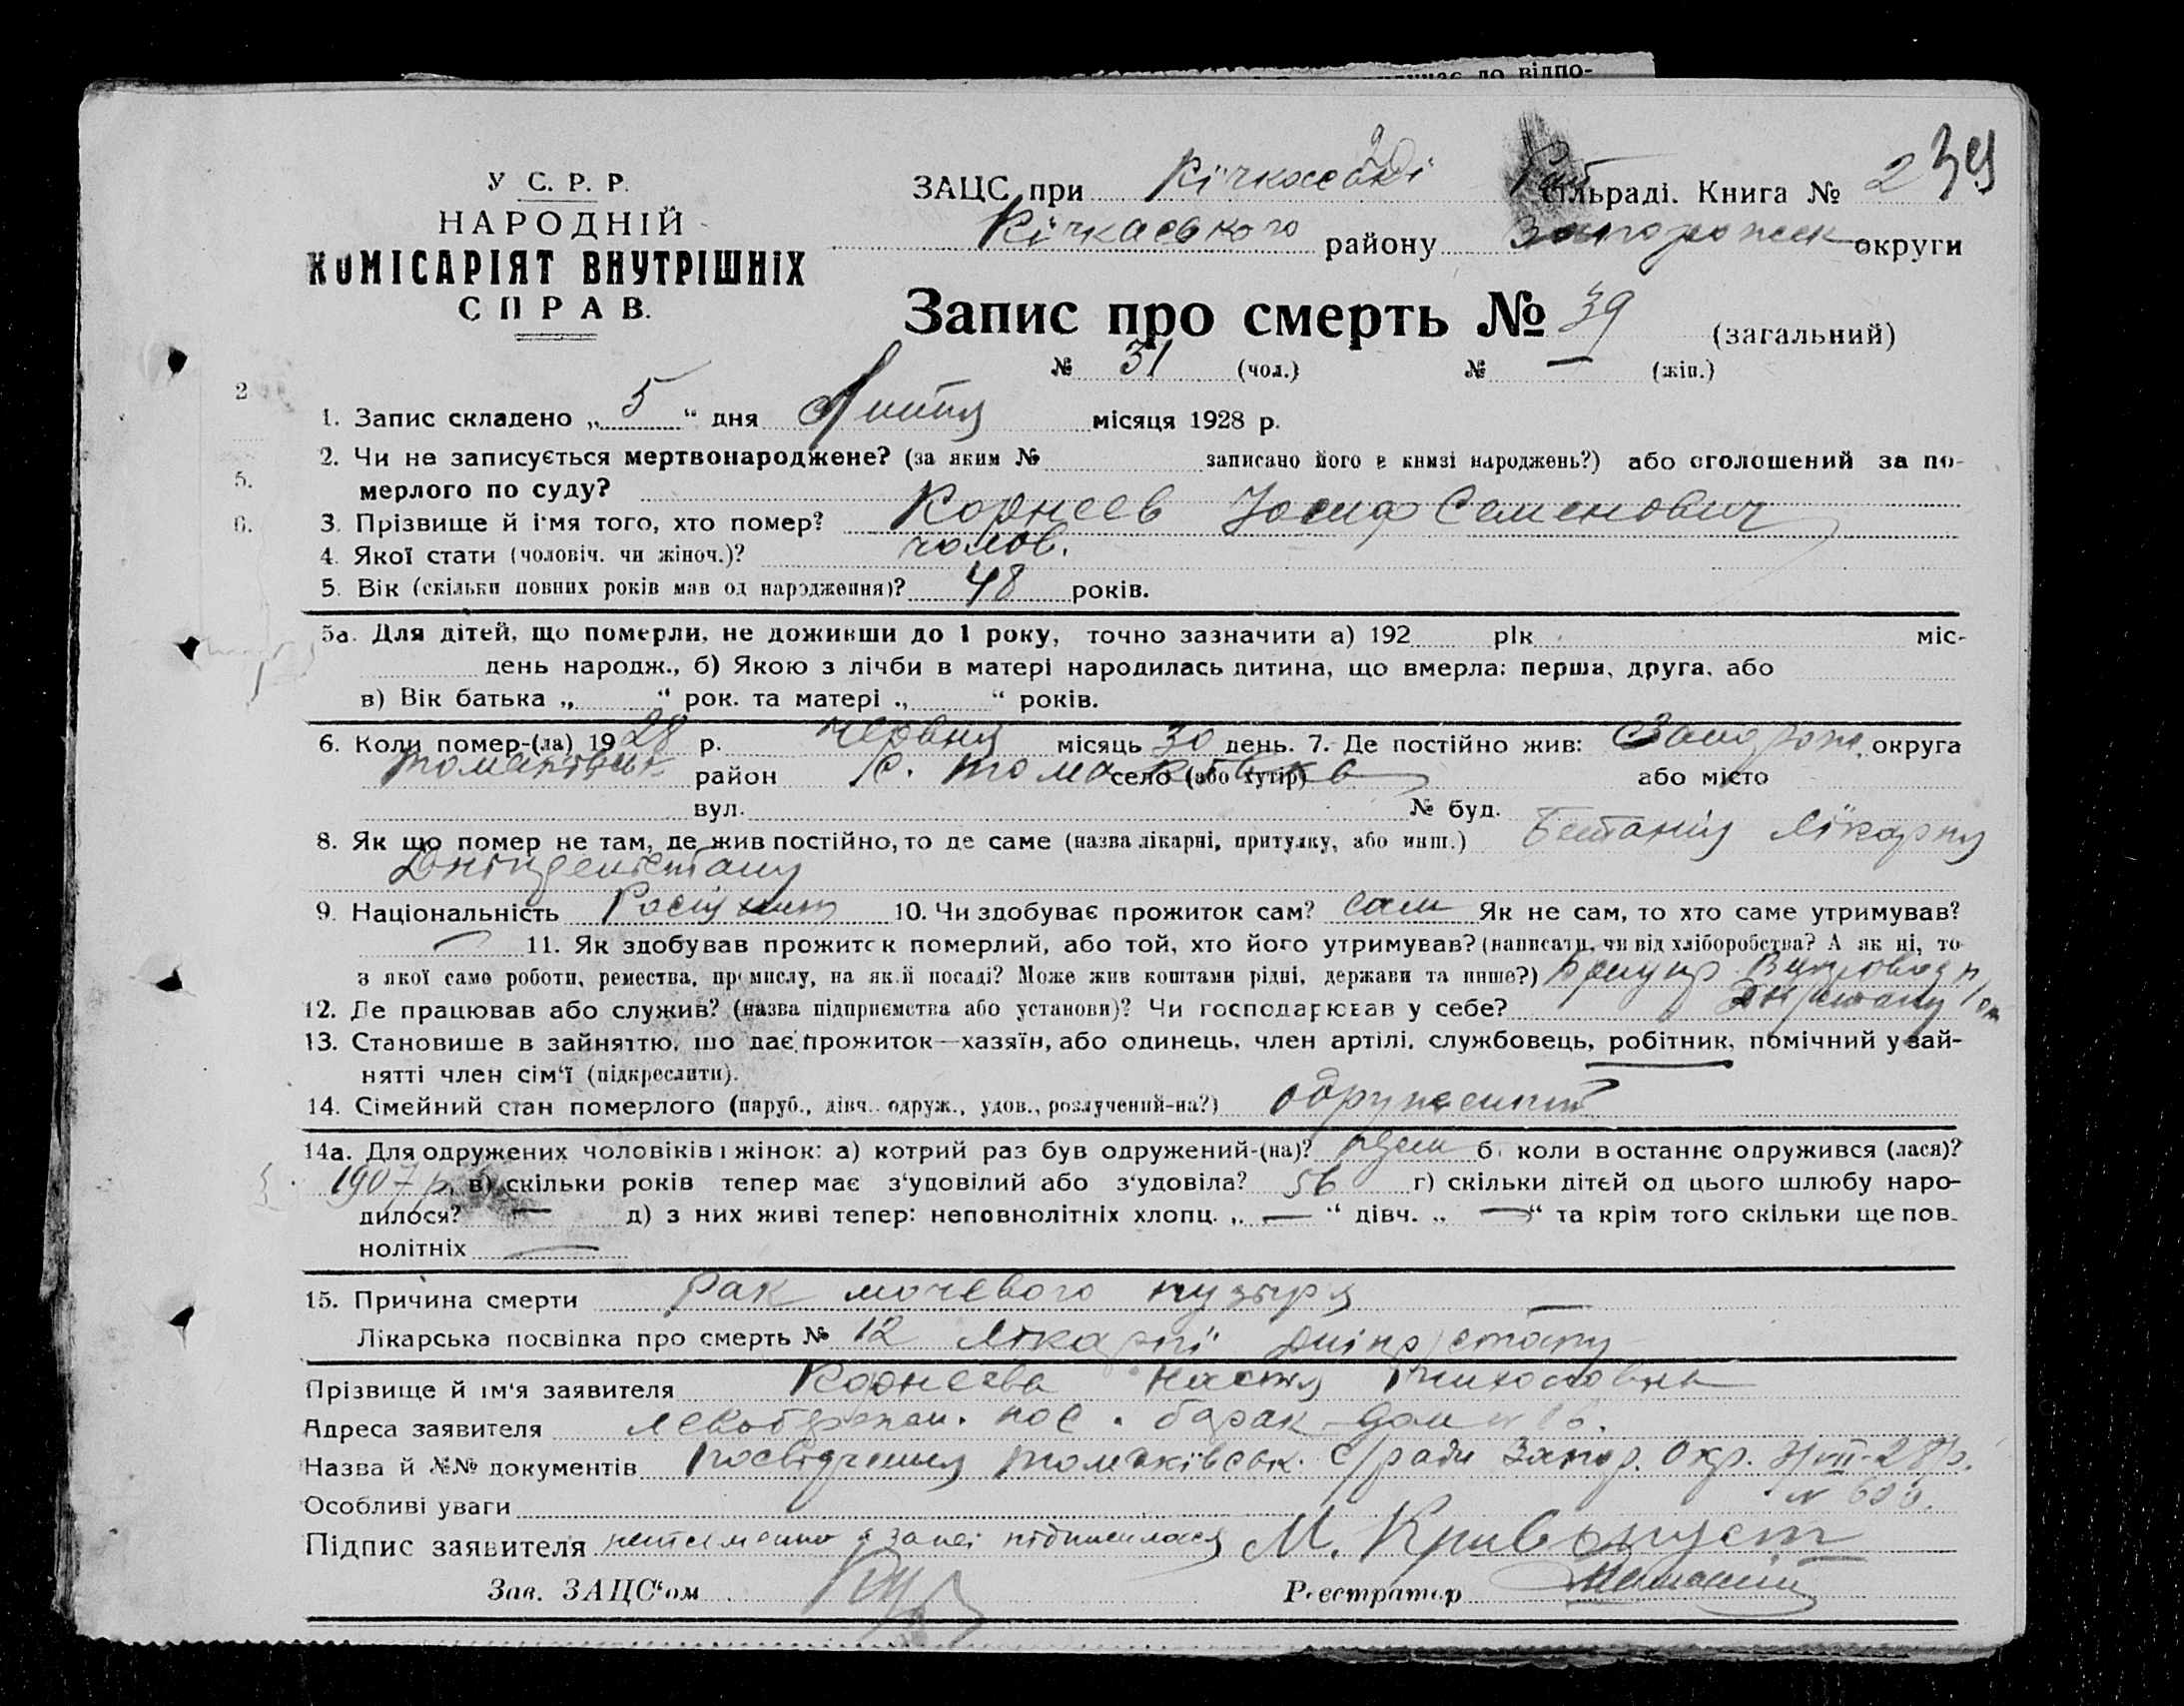 У С. Р. Р.
НАРОДНІЙ
КОМІСАРІЯТ ВНУТРІШНІХ
СПРАВ.
ЗАЦС при Сільраді. Книга № 2 39
Кічкаського району округи
Запис про смерть № 39 (загальний)
№ 31 (чол.) № — (жін.)
1. Запис складено „ 5 “ дня Липня місяця 1928 р.
2. Чи не записується мертвонароджене? (за яким № записано його в книзі народжень?) або оголошений за по-
мерлого по суду?
3. Прізвище й ім'я того, хто помер? Корнеев Иосиф Семенович
4. Якої стати (чоловіч. чи жіноч.)? чолов.
5. Вік (скільки повних років мав од народження)? 48 років.
5а. Для дітей, що померли, не доживши до 1 року, точно зазначити а) 192 рік міс-
день народж., б) Якою з лічби в матері народилась дитина, що вмерла: перша, друга, або
в) Вік батька „ “ рок. та матері „ “ років.
6. Коли помер-(ла) 19 28 р. Червня місяць 30 день. 7. Де постійно жив: округа
район с. Томаківка село (або хутір) або місто
вул. № буд.
8. Як що помер не там, де жив постійно, то де саме (назва лікарні, притулку, або инш.) лікарня
9. Національність 10. Чи здобуває прожиток сам? сам Як не сам, то хто саме утримував?
— 11. Як здобував прожиток померлий, або той, хто його утримував? (написати, чи від хліборобства? А як ні, то
з якої саме роботи, ремества, промислу, на якій посаді? Може жив коштами рідні, держави та инше?)
12. Де працював або служив? (назва підприємства або установи)? Чи господарював у себе?
13. Становище в зайняттю, що дає прожиток—хазяїн, або одинець, член артілі, службовець, робітник, помічний у зай-
нятті член сім'ї (підкреслити).
14. Сімейний стан померлого (паруб., дівч., одруж., удов., розлучений-на?) одружений
14а. Для одружених чоловіків і жінок: а) котрий раз був одружений-(на)? б) коли востаннє одружився (лася)?
1907 р. в) скільки років тепер має з'удовілий або з'удовіла? 56 г) скільки дітей од цього шлюбу наро-
дилося? — д) з них живі тепер: неповнолітніх хлопц. „ — “ дівч. „ — “ та крім того скільки ще пов-
нолітніх —
15. Причина смерти Рак мочевого пузыря —
Лікарська посвідка про смерть № 12 Лікарні
Прізвище й ім'я заявителя Корнеева Настя
Адреса заявителя пос. барак
Назва й №№ документів Посвідчення Томаківськ. с/ради Запор. Окр.
Особливі уваги
Підпис заявителя неписьменна а за неї підписалася М. Кривопуст
Зав. ЗАЦС'ом Реєстратор